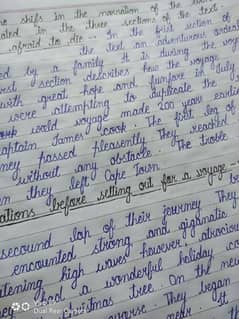 e shifs in the narration of the
ated in the three sections of the text
afraid to die -. In the first section of
the text an adventurous
ed by a family It is during the
rst section describes how the voyage
with great hope and funfare in July
were attempting to duplicate the
world voyage made 200 years earlier
aptain James cook. The first leg of
ney passed pleasently They reached
without any obstacle. The troble
n they left Cape Town
ations before setting out for a voyage -
secound lap of their journey They
encounted strong and gigantic
tening high waves however atrocious
they had a wonderful holiday
istmas tree. On the new
They began
Dual Rear Camera